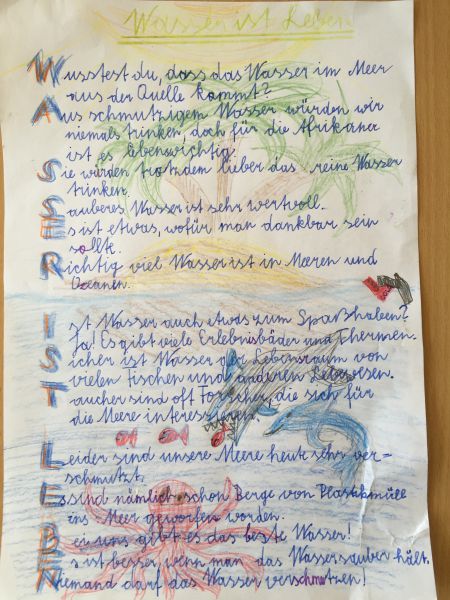 Wasser ist Leben
Wusstest du, dass das Wasser im Meer
aus der Quelle kommt?
Aus schmutzigem Wasser würden wir
niemals trinken, doch für die Afrikaner
ist es lebenswichtig.
Sie würden trotzdem lieber das reine Wasser
trinken.
Sauberes Wasser ist sehr wertvoll.
Es ist etwas, wofür man dankbar sein
sollte.
Richtig viel Wasser ist in Meeren und
Ozeanen.
Ist Wasser auch etwas zum Spaßhaben?
Ja! Es gibt viele Erlebnisbäder und Thermen.
Sicher ist Wasser der Lebensraum von
vielen Fischen und anderen Lebewesen.
Taucher sind oft Forscher, die sich für
die Meere interessieren.
Leider sind unsere Meere heute sehr ver-
schmutzt.
Es sind nämlich schon Berge von Plastikmüll
ins Meer geworfen worden.
Bei uns gibt es das beste Wasser!
Es ist besser, wenn man das Wasser sauber hält.
Niemand darf das Wasser verschmutzen!